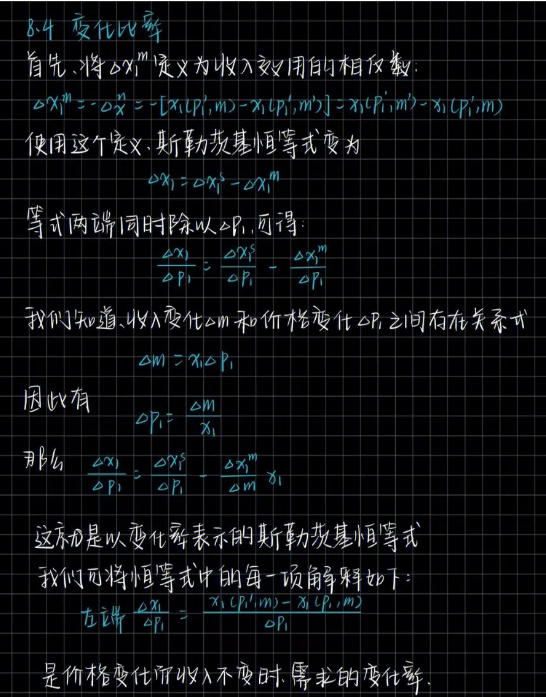 8.4 变化比率
首先、将△x₁ᵐ定义为收入效用的相反数:
△x₁ᵐ=-△xⁿ=-[x₁(p₁',m)-x₁(p₁',m')]=x₁(p₁',m')-x₁(p₁',m)
使用这个定义、斯勒茨基恒等式变为
△x₁=△x₁ˢ-△x₁ᵐ
等式两端同时除以△P₁,可得:
△x₁/△P₁=△x₁ˢ/△P₁-△x₁ᵐ/△P₁
我们知道、收入变化△m和价格变化△P₁之间存在关系式
△m=x₁△P₁
因此有
△P₁=△m/x₁
那么 △x₁/△P₁=△x₁ˢ/△P₁-△x₁ᵐ/△m x₁
这就是以变化率表示的斯勒茨基恒等式
我们可将恒等式中的每一项解释如下:
左端 △x₁/△P₁=x₁(P₁',m)-x₁(P₁,m)/△P₁
是价格变化而收入不变时、需求的变化率.